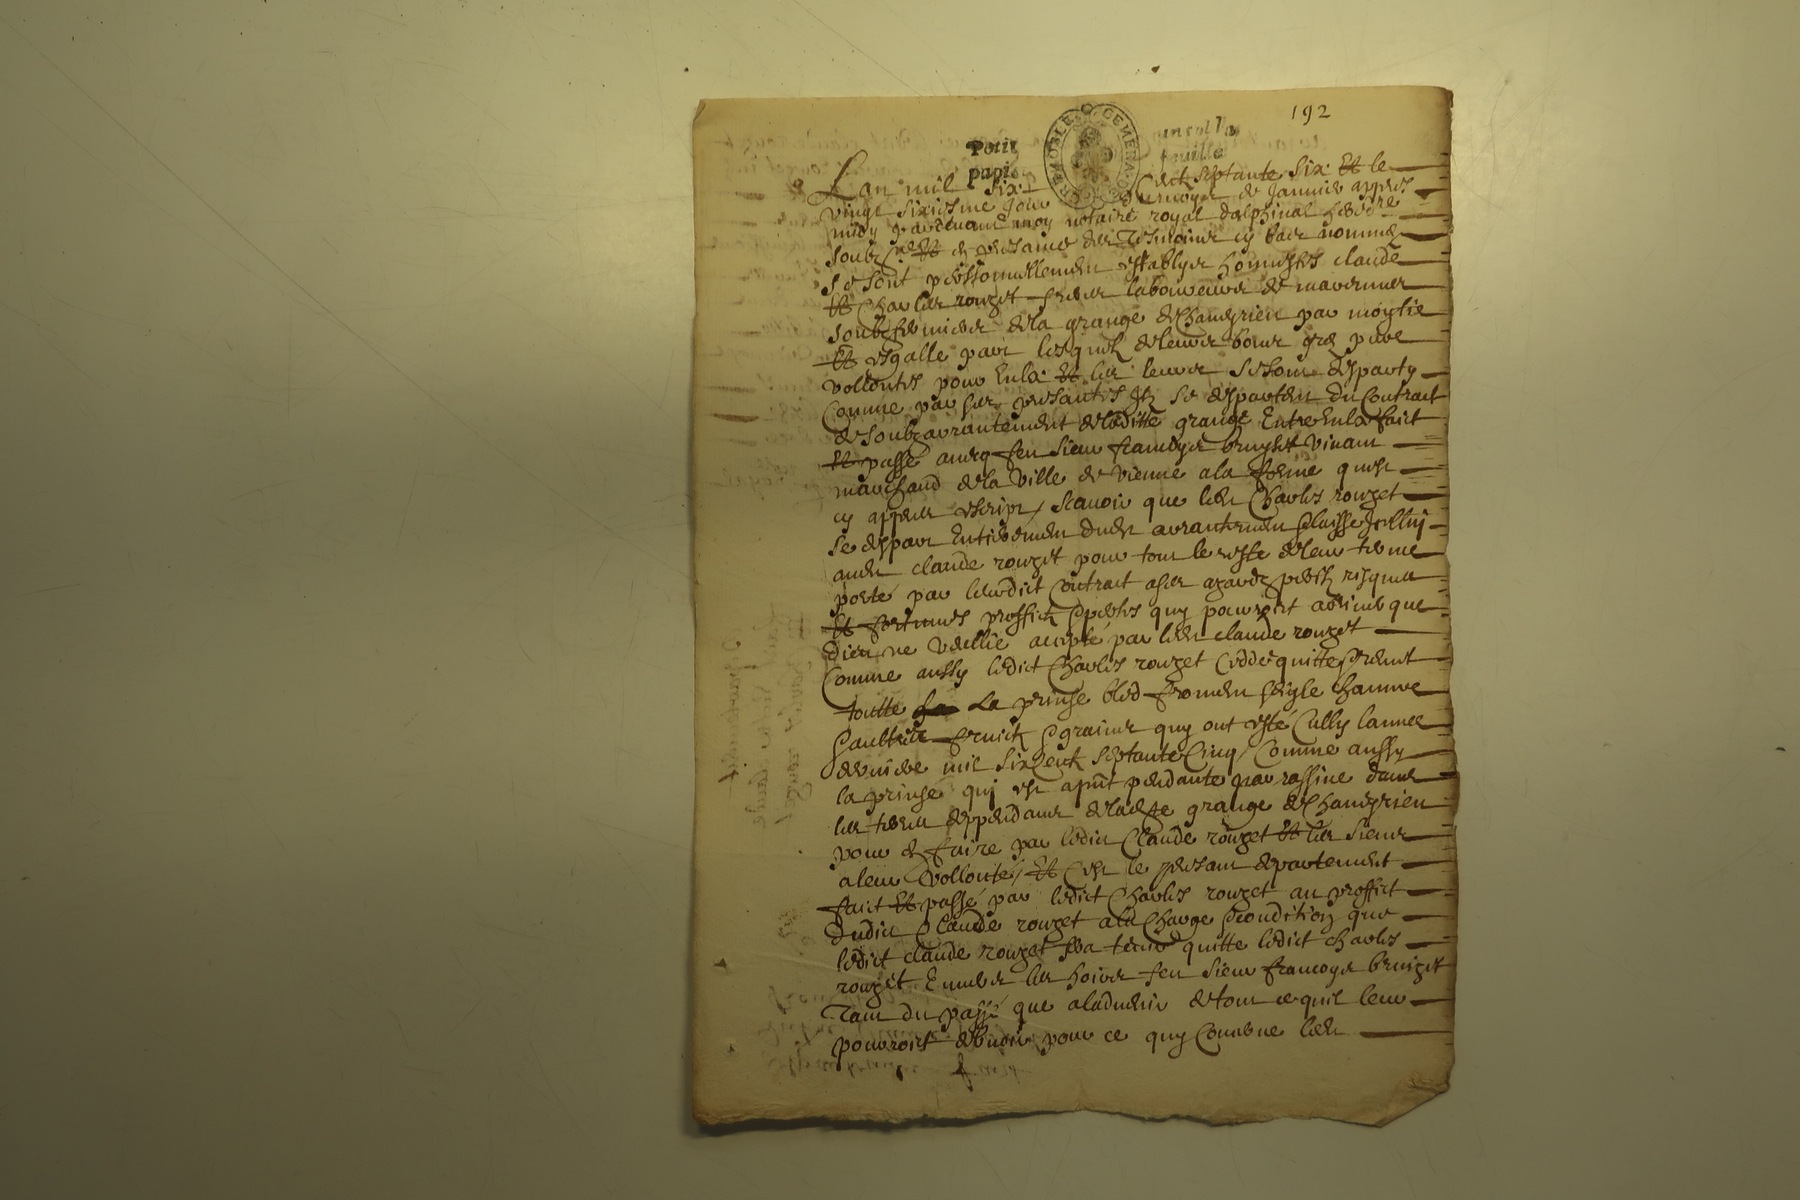 192
GRENOBLE GENERA DE
Petit papie
un sol la feuille
Lan mil six Centz septante six Et le
vingt sixiesme Jour de Janvier appres
midy pardevant moy notaire royal dalphinal hereDre
soubzne Et en presance des Tesmoins cy bas nommes
se sont personnellement establys honnestes claude
Et Charles rouget freres laboureurs de
soubzfermiers dela grange de Chandyrieu par moytie
Et esgalle part lesquelz deleurs bons gré pure
vollontes pour Eulx Et les leurs se sont desparty
Comme par ses presantes Ilz se despartent du Contrait
de soubzarrantement deladitte grange Entre Eulx fait
Et passé avecq feu sieur francoys vivant
marchand dela Ville de Vienne a la forme quest
cy appres escript / scavoir que ledit Charles rouget
se despart Entierement dudit arrantement laisse Icelluy
audit claude rouget pour tout le reste deleur terme
porté par leurdict Contrait a ses azardz perilz risques
Et fortunes proffictz pertes quy pourroit advenir que
dieu ne veullie accepté par ledit claude rouget
Comme aussy ledict Charles rouget Cedde quitte remet
toutte la prinse bled fromen seigle
fruictz grains quy ont esté Cullis lannee
derniere mil six Centz septante Cinq / Comme aussy
la prinse qui est apnt pendante par rassine dans
les terres deppendans deladte grange de Chandyrieu
pour en faire par ledict Claude rouget Et les siens
a leur vollonté / Et Cest le presant departement
fait Et passé par ledict Charles rouget au proffict
dudict Claude rouget a la Charge Condition que
ledict claude rouget fera tenir quitte ledict charles
rouget Envers les hoirs feu sieur francoys
Tant du passé que aladvenir de tout ce quil leur
pourroit debvoir pour ce quy Conserne ledit